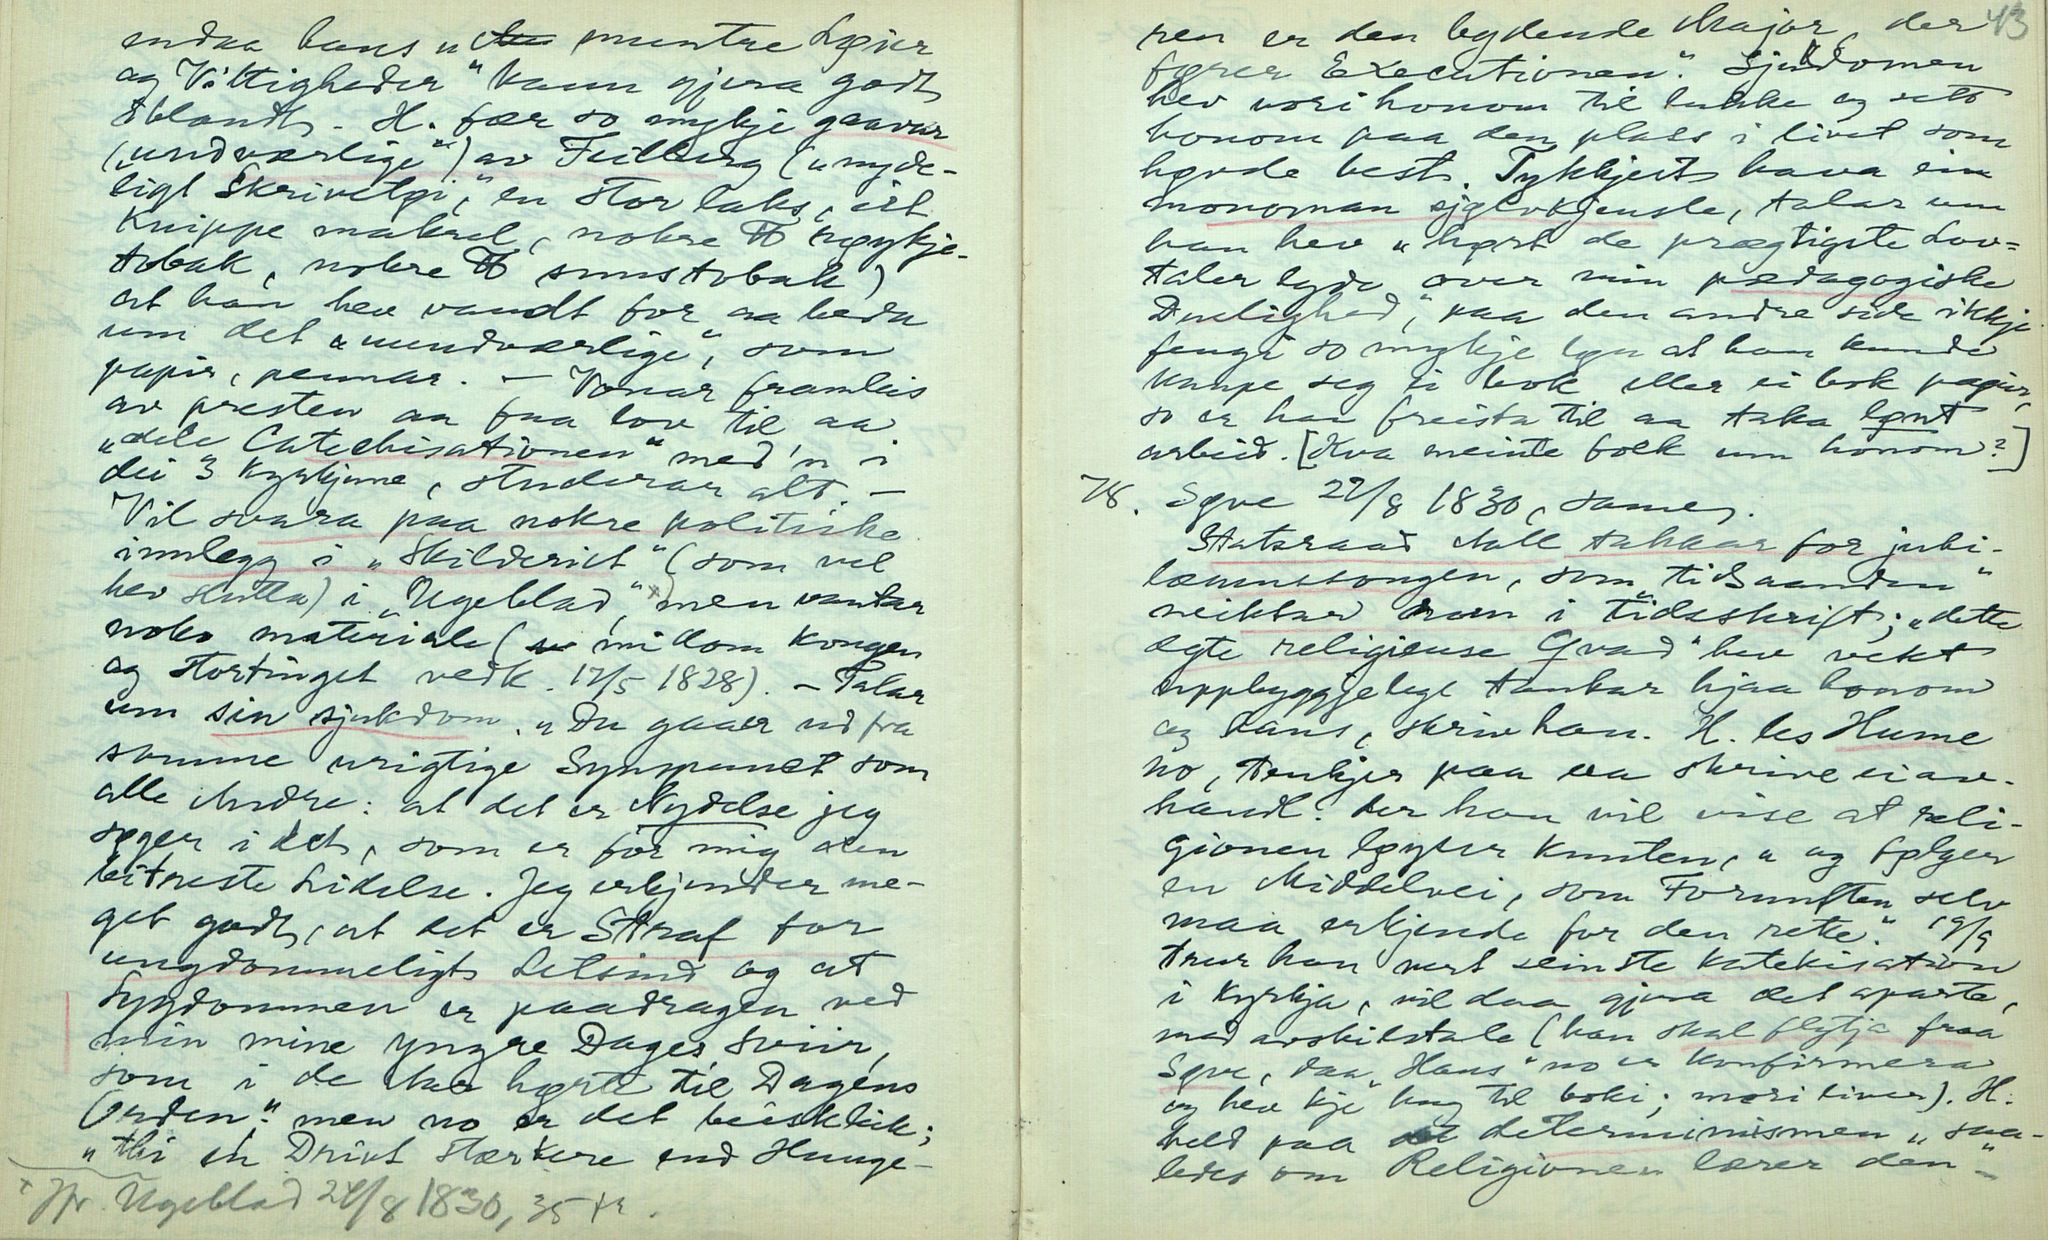 endaa hans „ muntre Løier
og Vittigheder" kann gjera godt
iblandt. - H. fær so mykje gaavur
(„undværlige") av Feilberg („nyde-
ligt Skrivetøi," en stor laks, eit
knippe makrel, nokre ℔ røykje-
tobak, nokre ℔ snustobak)
at han hev vandt for aa beda
um det „uundværlige", som
papir, pennar. - Vonar framleis
av presten aa faa lov til aa
„dele Catechisationen" med 'n i
dei 3 kyrkjune, studerar alt. -
Vil svara paa nokre politiske
innlegg i „Skilderiet" (som vel
hev slutta) i „Ugeblad," x) men vantar
noko materiale ( millom kongen
og stortinget vedk. 17/5 1828). - Talar
um sin sjukdom. „Du gaaer ud fra
samme urigtige Synspunct som
alle Andre: at det er Nydelse jeg
søger i det, som er for mig den
bitreste Lidelse. Jeg erkjender me-
get godt, at det er Straf for
ungdommeligt Letsind og at
Sygdommen er paadragen ved
min mine yngre Dages Sviir,
som i de hørte til Dagens
Orden." men no er det beisk leik;
„thi en Drivt stærkere end Hunge-
x Jfr. Ugeblad 24/8 1830, 35 
43
ren er den bydende Major, der
fører Executionen". Sjukdomen
hev vori honom til lukke og sett
honom paa den plass i livet som
høvde best. Tykkjest hava ein
monoman sjølvkjensle, talar um
han hev „hørt de prægtigste Lov-
taler lyde over min pædagogiske
Duelighed," paa den andre side ikkje
fengi so mykje løn at han kunde
kaupe seg ei bok eller ei bok papir,
so er han freista til aa taka lønt
arbeid. [Kva meinte folk um honom?]
78. Søve 22/8 1830, same.
Statsraad Mall takkar for jubi-
læumssongen, som „tidsaanden"
neiktar rom i tidsskrift; „dette
ægte religieuse Qvad" hev vekt
uppbyggjelege tankar hjaa honom
og hans, skriv han. H. les Hume
no, tenkjer paa aa skrive ei av-
handl. der han vil vise at reli-
gionen løyser knuten, „og følger
en Middelvei, som Fornuften selv
maa erkjende for den rette." 19/9
trur han vert seinste katekisation
i kyrkja, vil daa gjera det aparte,
med avskilstale (han skal flytja fraa
Søve, daa „Hans" no er konfirmera
og hev kje hug til boki; mori liver). H.
held paa determinismen „saa-
ledes om Religionen lærer den" -